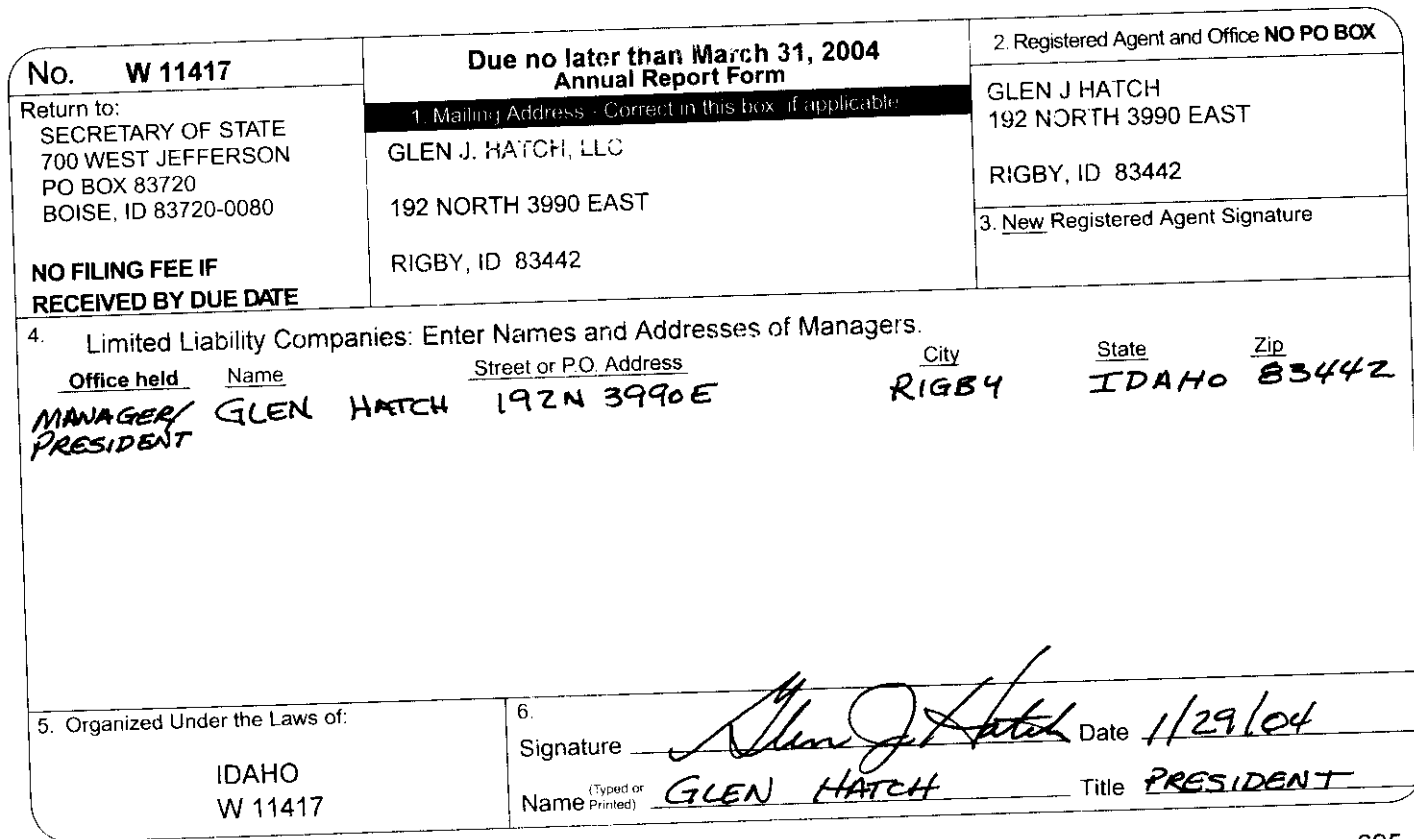 No. W 11417
Return to:
SECRETARY OF STATE
700 WEST JEFFERSON
PO BOX 83720
BOISE, ID 83720-0080
NO FILING FEE IF
RECEIVED BY DUE DATE
Due no later than March 31, 2004
Annual Report Form
1. Mailing Address - Correct in this box if applicable
GLEN J. HATCH, LLC
192 NORTH 3990 EAST
RIGBY, ID 83442
2. Registered Agent and Office NO PO BOX
GLEN J HATCH
192 NORTH 3990 EAST
RIGBY, ID 83442
3. New Registered Agent Signature
4. Limited Liability Companies: Enter Names and Addresses of Managers.
Office held Name Street or P.O. Address City State Zip
MANAGER/ GLEN HATCH 192N 3990E RIGBY IDAHO 83442
PRESIDENT
5. Organized Under the Laws of:
IDAHO
W 11417
6.
Signature Glen J Hatch Date 1/29/04
Name (Typed or Printed) GLEN HATCH Title PRESIDENT